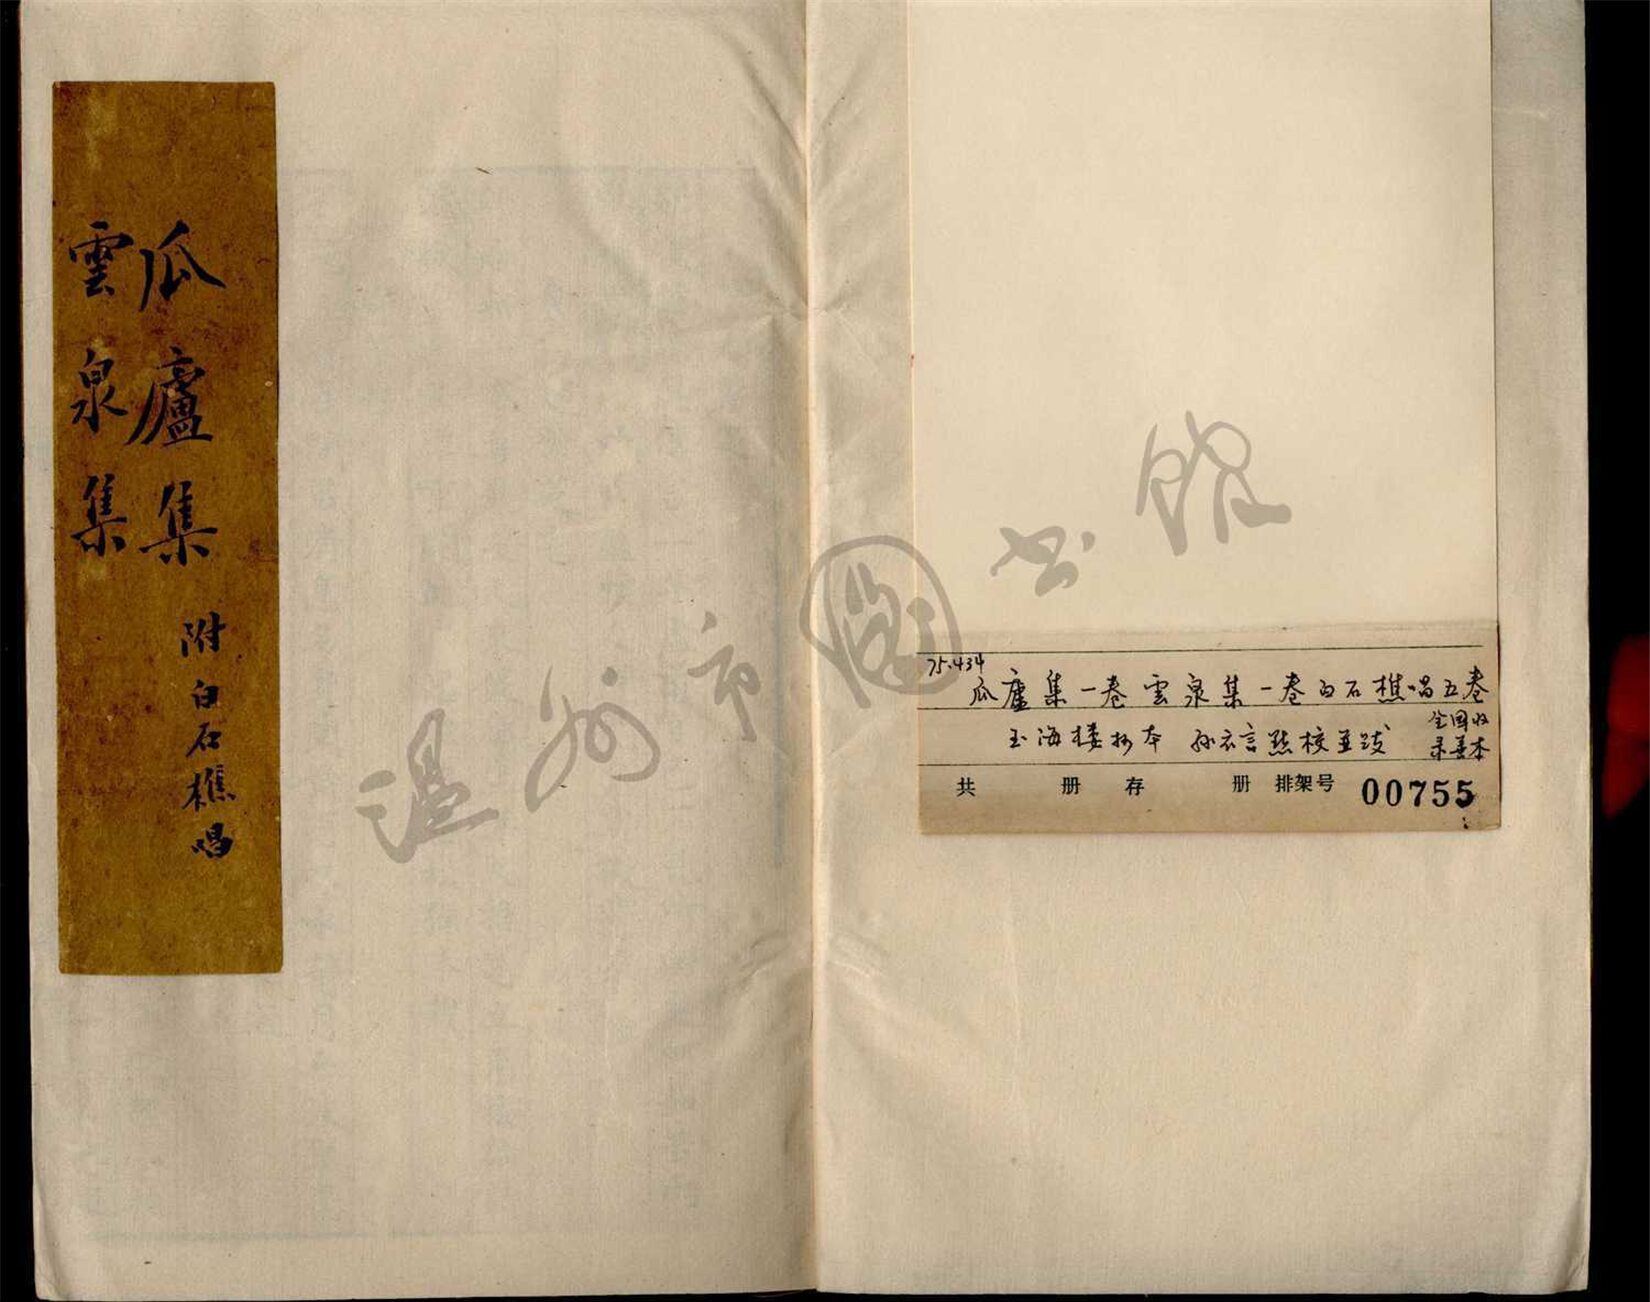 瓜廬集
雲泉集
附白石樵唱
75.434
瓜廬集一卷雲泉集一卷白石樵唱五卷
玉海楼抄本 孙衣言點校並跋 全国收
录善本
共 册 存 册 排架号 00755
温州市图书馆